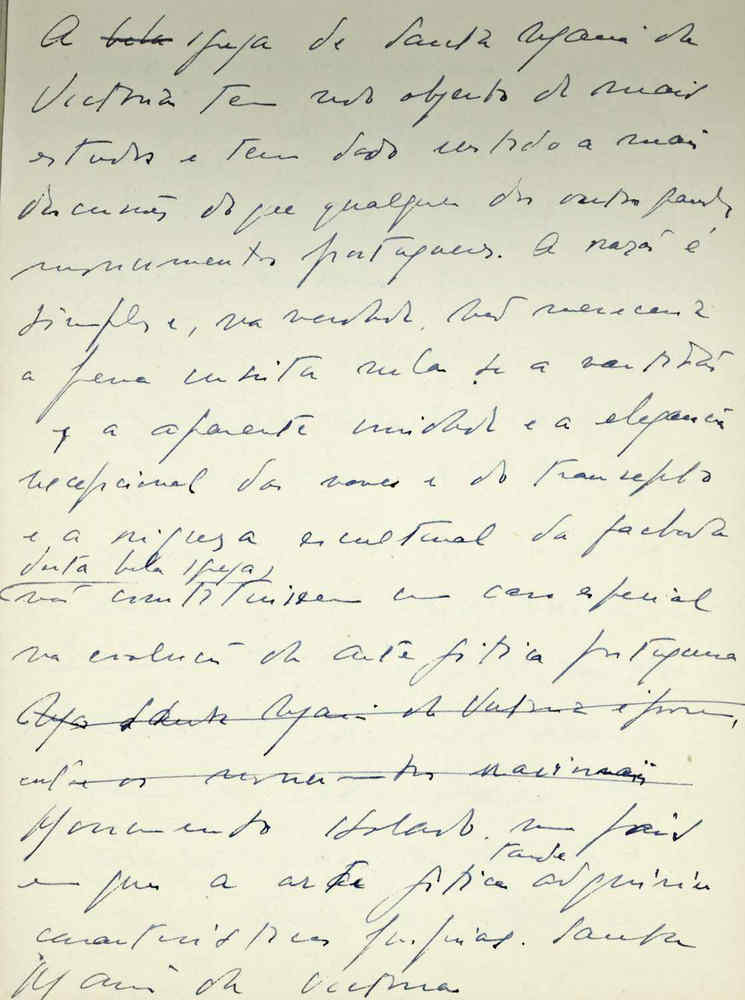 A bela igreja de Santa Maria da
Victoria tem sido objecto de mais
estudos e tem dado sentido a mais
discussões do que qualquer dos outros grandes
monumentos portugueses. A razão é
simples e, na verdade, não mereceria
a pena insistir nela se a vastidão
e a aparente unidade e a elegancia
excepcional das naves e do transepto
e a riqueza escultural da fachada
desta bela igreja,
não constituissem um caso especial
na evolução da arte gótica portuguesa
Mas Santa Maria da Victoria é, porem,
entre os monumentos nacionais
Monumento isolado, num país
em que a arte gótica tarde adquiriu
caracteristicas proprias. Santa
Maria da Victoria